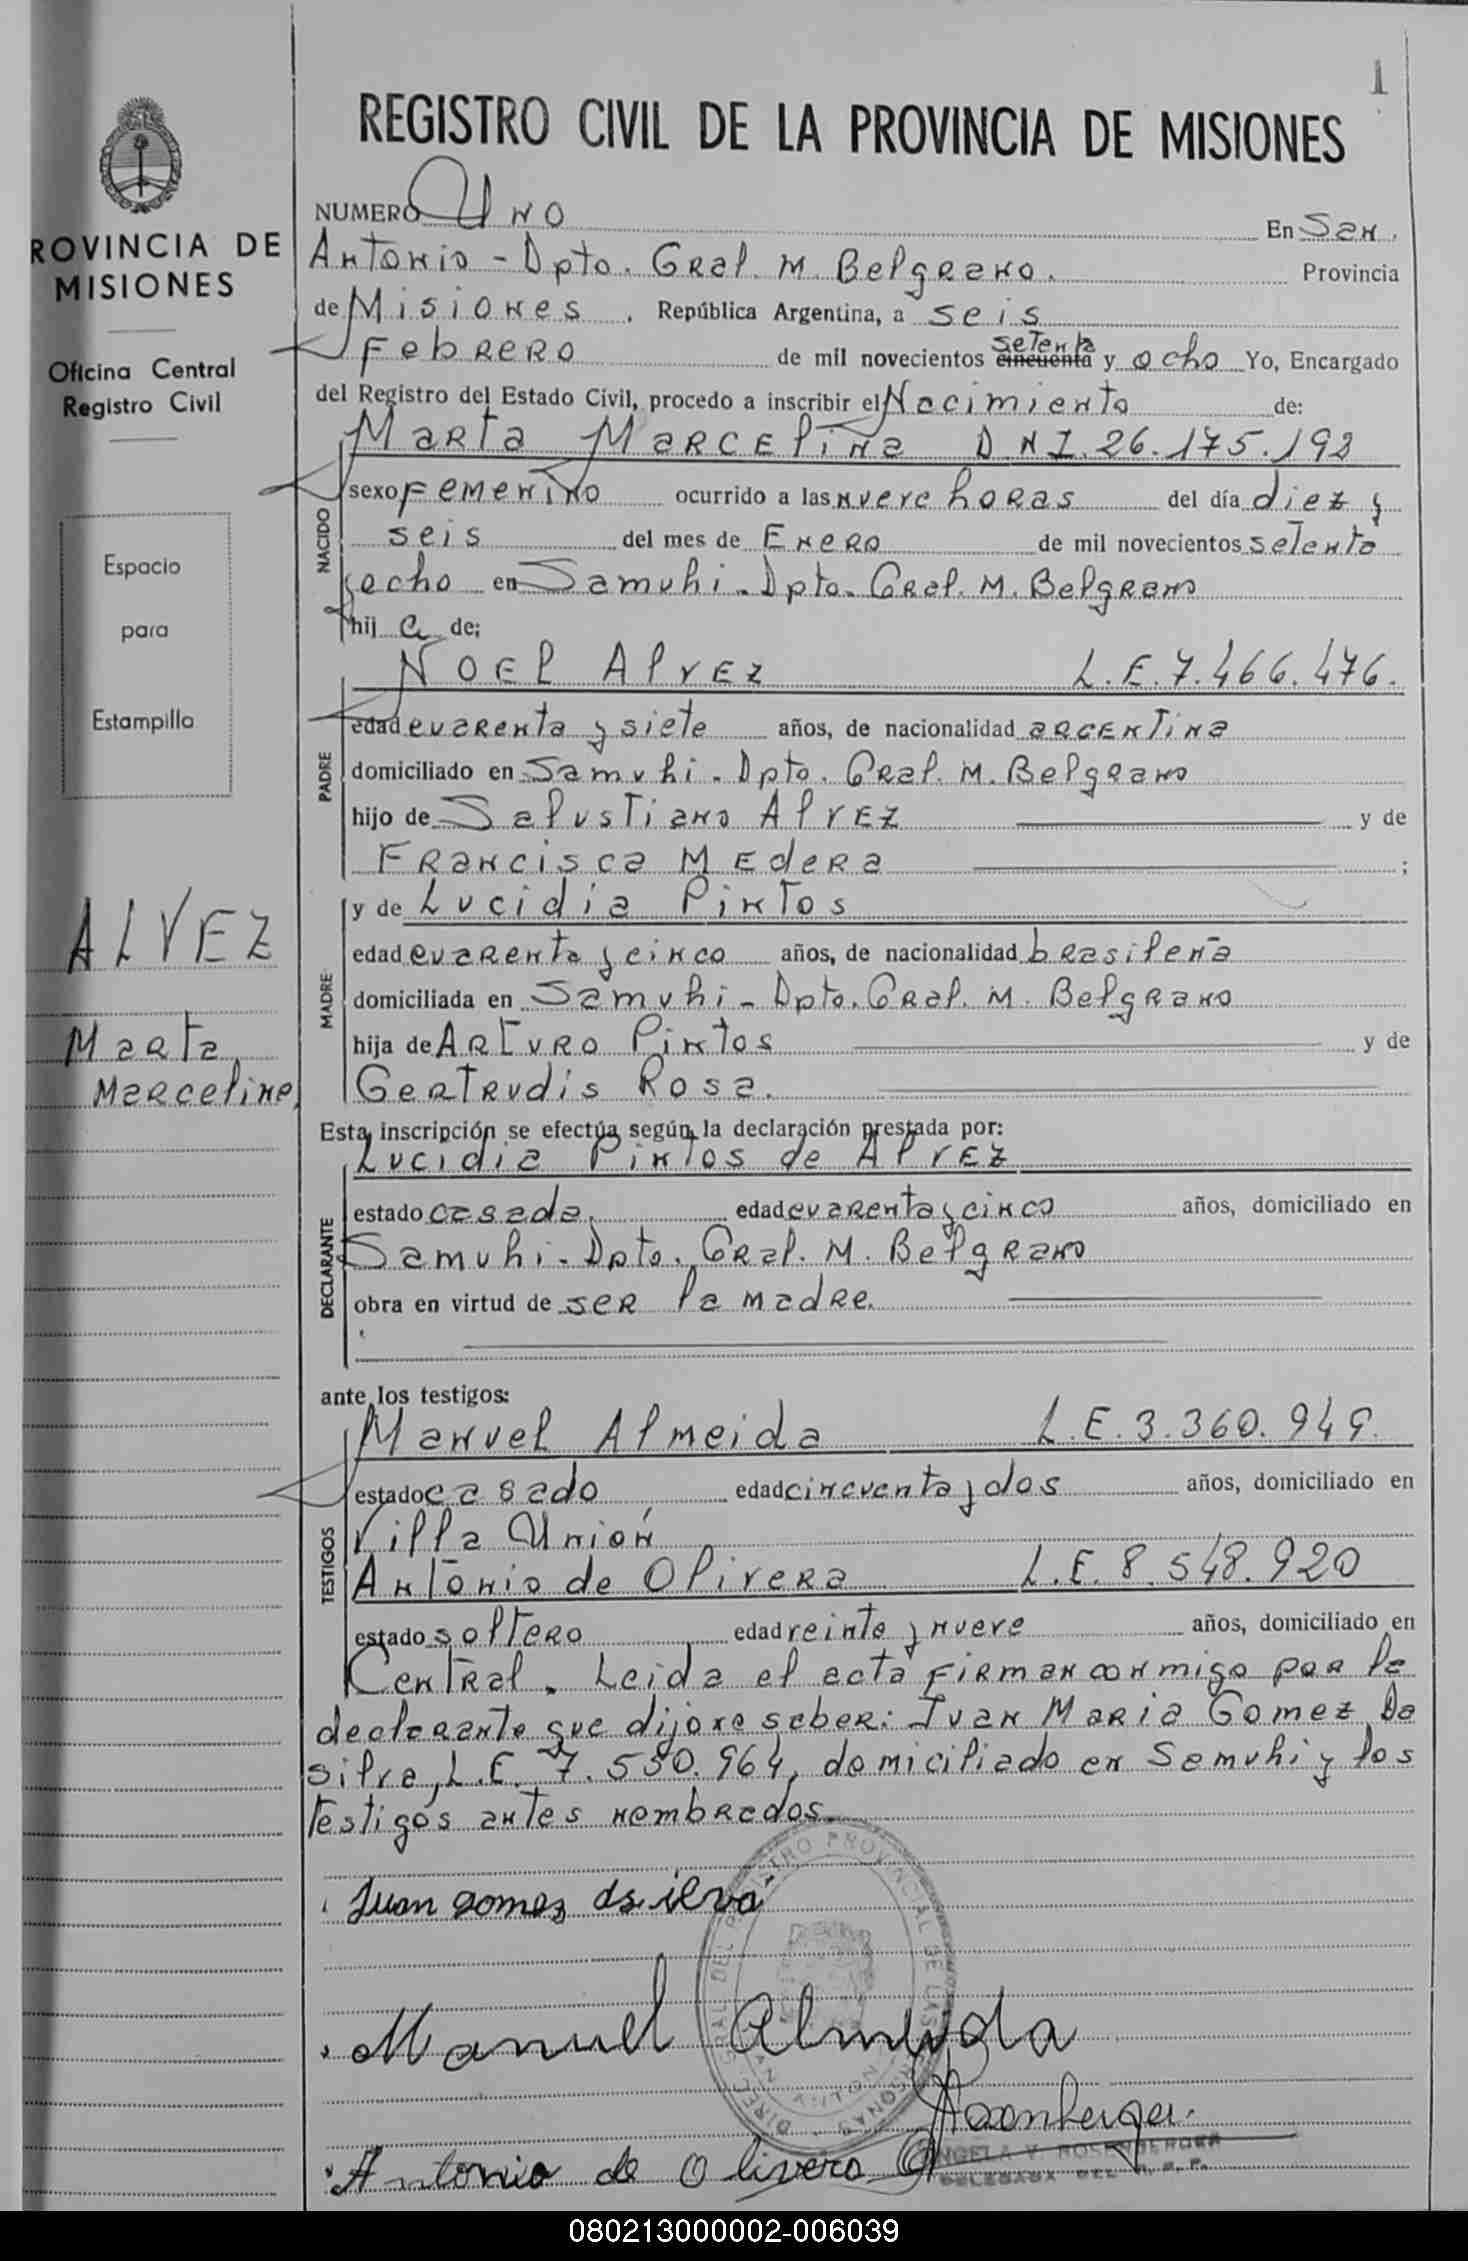 1
REGISTRO CIVIL DE LA PROVINCIA DE MISIONES
ROVINCIA DE
MISIONES
Oficina Central
Registro Civil
Espacio
para
Estampilla
ALVEZ
Marta
Marcelina
NUMERO Uno En San
Antonio - Dpto. Gral. M. Belgrano. Provincia
de Misiones, República Argentina, a seis
Febrero de mil novecientos cincuenta setenta y ocho Yo, Encargado
del Registro del Estado Civil, procedo a inscribir el Nacimiento de:
Marta Marcelina DNI. 26.175.192
NACIDO
sexo Femenino ocurrido a las nueve horas del día diez y
seis del mes de Enero de mil novecientos setenta
y ocho en Samuhi - Dpto. Gral. M. Belgrano
hij a de:
Noel Alvez L.E. 7.466.476.
PADRE
edad cuarenta y siete años, de nacionalidad argentina
domiciliado en Samuhi - Dpto. Gral. M. Belgrano
hijo de Salustiano Alvez y de
Francisca Medera ;
y de Lucidia Pintos
MADRE
edad cuarenta y cinco años, de nacionalidad brasileña
domiciliada en Samuhi - Dpto. Gral. M. Belgrano
hija de Arturo Pintos y de
Gertrudis Rosa.
Esta inscripción se efectúa según la declaración prestada por:
Lucidia Pintos de Alvez
DECLARANTE
estado casada. edad cuarenta y cinco años, domiciliado en
Samuhi - Dpto. Gral. M. Belgrano
obra en virtud de ser la madre.
ante los testigos:
Manuel Almeida L.E. 3.360.949.
TESTIGOS
estado casado edad cincuenta y dos años, domiciliado en
Villa Unión
Antonio de Olivera L.E. 8.548.920
estado soltero edad veinte y nueve años, domiciliado en
Central. Leida el acta firman conmigo por la
declarante que dijo no saber: Juan Maria Gomez Da
Silva, L.E. 7.550.964, domiciliado en Samuhi y los
testigos antes nombrados.
Juan gomez dasilva
Manuel Almeida
Rosenberger
Antonio de Olivera
ANGELA V. ROSENBERGER
080213000002-006039